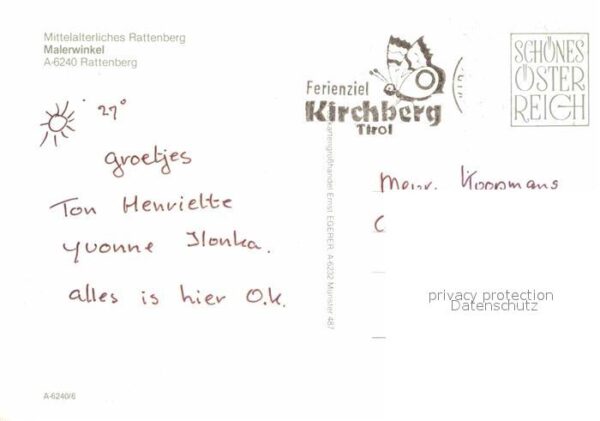 Mittelalterliches Rattenberg
Malerwinkel
A-6240 Rattenberg
27°
groetjes
Ton Henriette
Yvonne Ilonka.
alles is hier O.K.
A-6240/6
Kartengroßhandel Ernst EGERER, A-6232 Münster 487
Ferienziel
Kirchberg
Tirol
SCHÖNES
ÖSTER
REICH
Mevr. Koopmans
privacy protection
Datenschutz